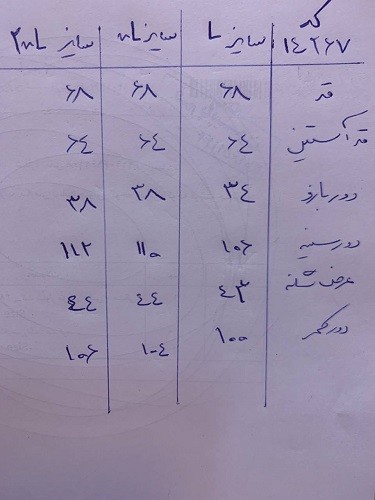 کد ۱٤۲۶۷ سایز L سایز XL سایز 2XL
قد ۶۸ ۶۸ ۶۸
قد آستین ۶٤ ۶٤ ۶٤
دور بازو ۳٤ ۳۸ ۳۸
دور سینه ۱۰۶ ۱۱۰ ۱۱۲
عرض شانه ٤۳ ٤٤ ٤٤
دور کمر ۱۰۰ ۱۰٤ ۱۰۶